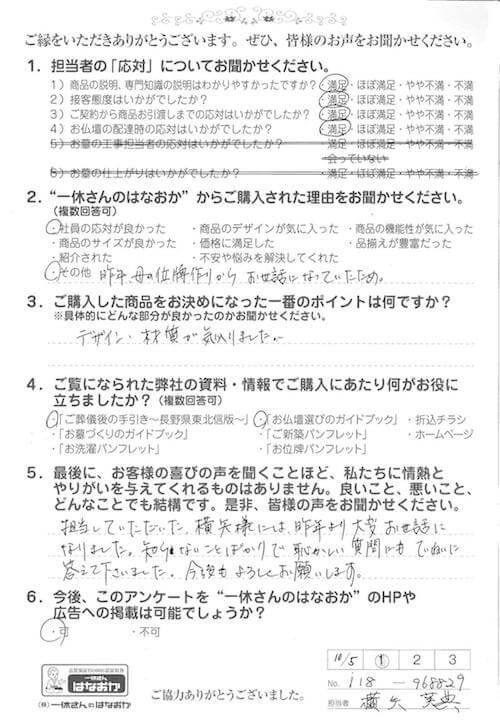 ご縁をいただきありがとうございます。ぜひ、皆様のお声をお聞かせください。
1．担当者の「応対」についてお聞かせください。
1）商品の説明、専門知識の説明はわかりやすかったですか？ 満足・ほぼ満足・やや不満・不満
2）接客態度はいかがでしたか？ 満足・ほぼ満足・やや不満・不満
3）ご契約から商品お引渡しまでの応対はいかがでしたか？ 満足・ほぼ満足・やや不満・不満
4）お仏壇の配達時の応対はいかがでしたか？ 満足・ほぼ満足・やや不満・不満
5）お墓の工事担当者の応対はいかがでしたか？ 満足・ほぼ満足・やや不満・不満
・会っていない
6）お墓の仕上がりはいかがでしたか？ 満足・ほぼ満足・やや不満・不満
2．“一休さんのはなおか”からご購入された理由をお聞かせください。
（複数回答可）
・社員の応対が良かった ・商品のデザインが気に入った ・商品の機能性が気に入った
・商品のサイズが良かった ・価格に満足した ・品揃えが豊富だった
・紹介された ・不安や悩みを解決してくれた
・その他 昨年、母の位牌作りから お世話になっていたため。
3．ご購入した商品をお決めになった一番のポイントは何ですか？
※具体的にどんな部分が良かったのかお聞かせください。
デザイン・材質が気入りました。
4．ご覧になられた弊社の資料・情報でご購入にあたり何がお役に
立ちましたか？（複数回答可）
・「ご葬儀後の手引き～長野県東北信版～」 ・「お仏壇選びのガイドブック」 ・折込チラシ
・「お墓づくりのガイドブック」 ・「ご新築パンフレット」 ・ホームページ
・「お洗濯パンフレット」 ・「お位牌パンフレット」
5．最後に、お客様の喜びの声を聞くことほど、私たちに情熱と
やりがいを与えてくれるものはありません。良いこと、悪いこと、
どんなことでも結構です。是非、皆様の声をお聞かせください。
担当していただいた、横矢様には、昨年より大変お世話に
なりました。知らないことばかりで恥かしい質問にもていねいに
答えて下さいました。今後もよろしくお願いします。
6．今後、このアンケートを“一休さんのはなおか”のHPや
広告への掲載は可能でしょうか？
・可 ・不可
一休さんの
はなおか
（株）一休さんのはなおか
ご協力ありがとうございました。
10/5 1 2 3
No. 118 － 968829
担当者 横矢 英典